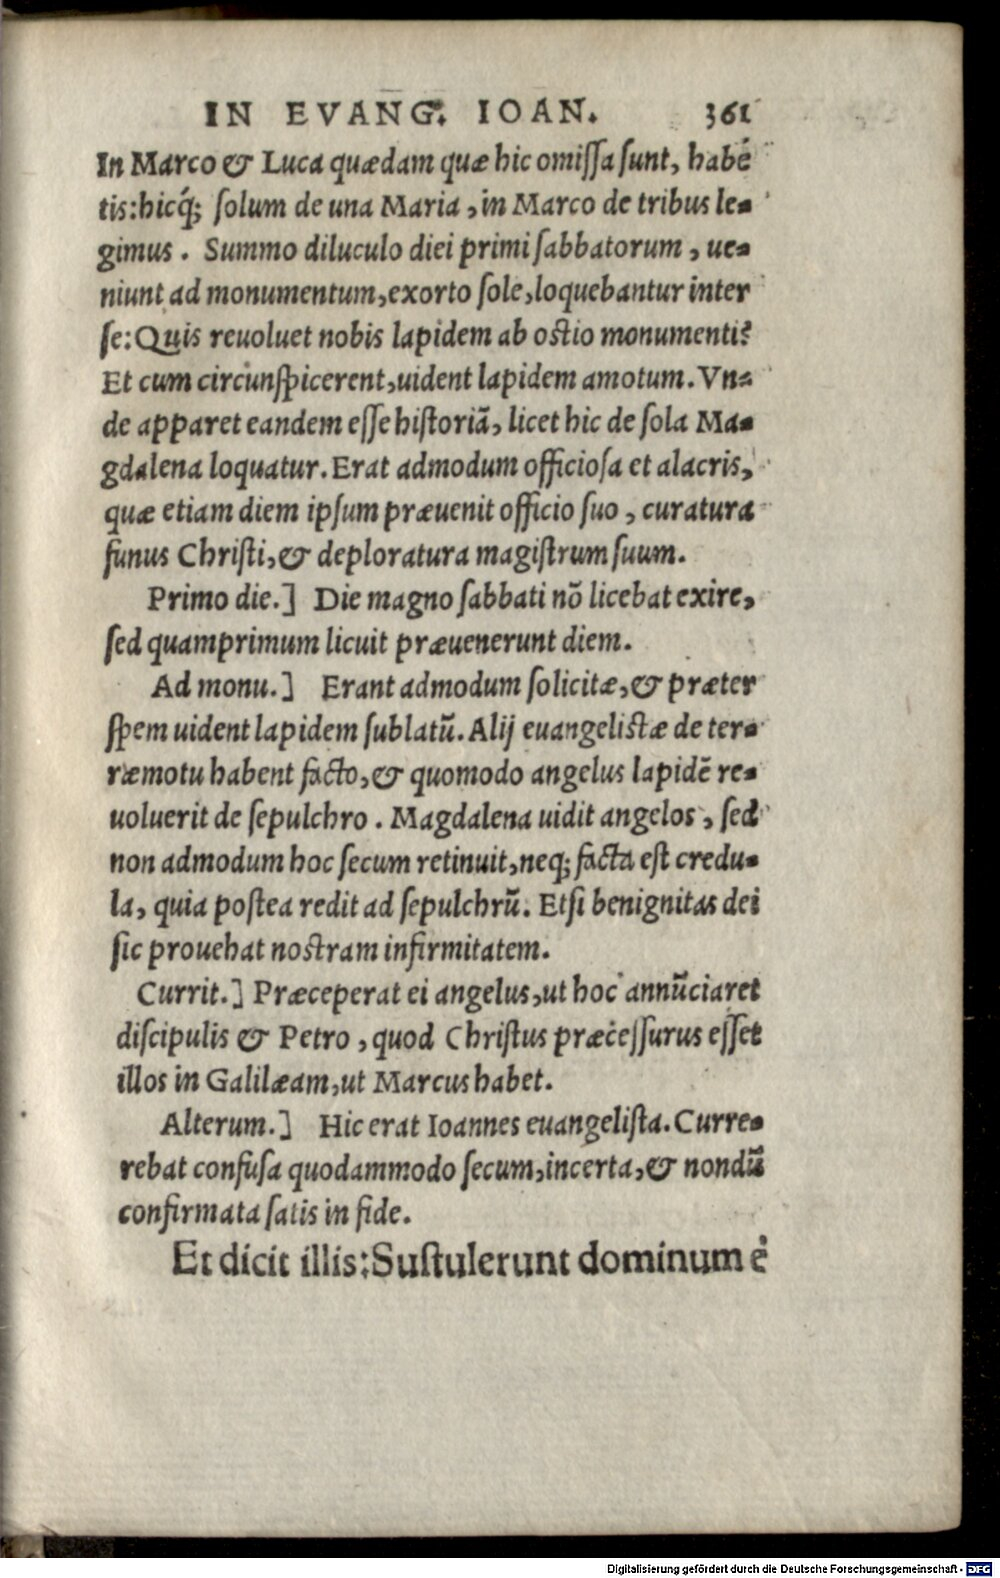 IN EVANG. IOAN. 361
In Marco & Luca quædam quæ hic omiſſa ſunt, habē
tis: hicq́; ſolum de una Maria, in Marco de tribus le-
gimus. Summo diluculo diei primi ſabbatorum, ue-
niunt ad monumentum, exorto ſole, loquebantur inter
ſe: Quis reuoluet nobis lapidem ab oſtio monumenti?
Et cum circūnſpicerent, uident lapidem amotum. Vn-
de apparet eandem eſſe hiſtoriā, licet hic de ſola Ma-
gdalena loquatur. Erat admodum officioſa et alacris,
quæ etiam diem ipſum præuenit officio ſuo, curatura
funus Chriſti, & deploratura magiſtrum ſuum.
Primo die.] Die magno ſabbati nō licebat exire,
ſed quamprimum licuit præuenerunt diem.
Ad monu.] Erant admodum ſolicitæ, & præter
ſpem uident lapidem ſublatū. Alij euangeliſtæ de ter-
ræmotu habent facto, & quomodo angelus lapidē re-
uoluerit de ſepulchro. Magdalena uidit angelos, ſed
non admodum hoc ſecum retinuit, neq; facta eſt credu-
la, quia poſtea redit ad ſepulchrū. Etſi benignitas dei
ſic prouehat noſtram infirmitatem.
Currit.] Præceperat ei angelus, ut hoc annūciaret
diſcipulis & Petro, quod Chriſtus præceſſurus eſſet
illos in Galilæam, ut Marcus habet.
Alterum.] Hic erat Ioannes euangeliſta. Curre-
rebat confuſa quodammodo ſecum, incerta, & nondū
confirmata ſatis in fide.
Et dicit illis: Suſtulerunt dominum ē
Digitalisierung gefördert durch die Deutsche Forschungsgemeinschaft - DFG